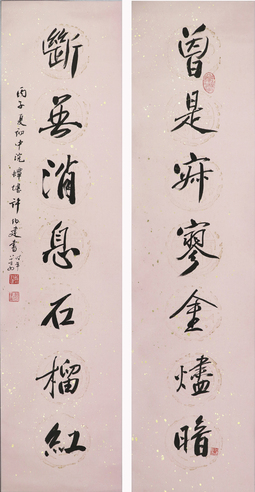 曾是寂寥金燼暗
斷無消息石榴紅
丙子夏初中浣許伯建書